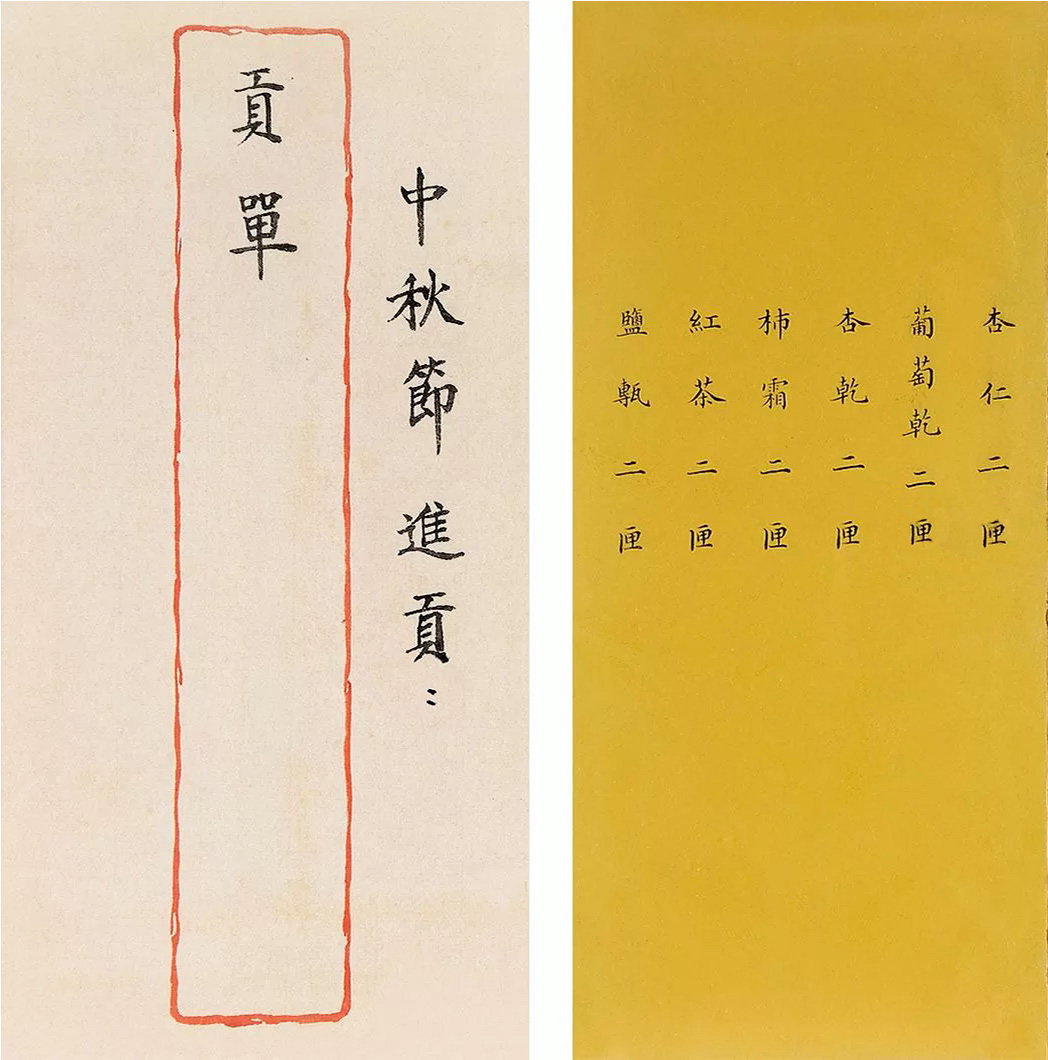 中秋節進貢：
貢單
杏仁二匣
葡萄乾二匣
杏乾二匣
柿霜二匣
紅茶二匣
鹽㼾二匣